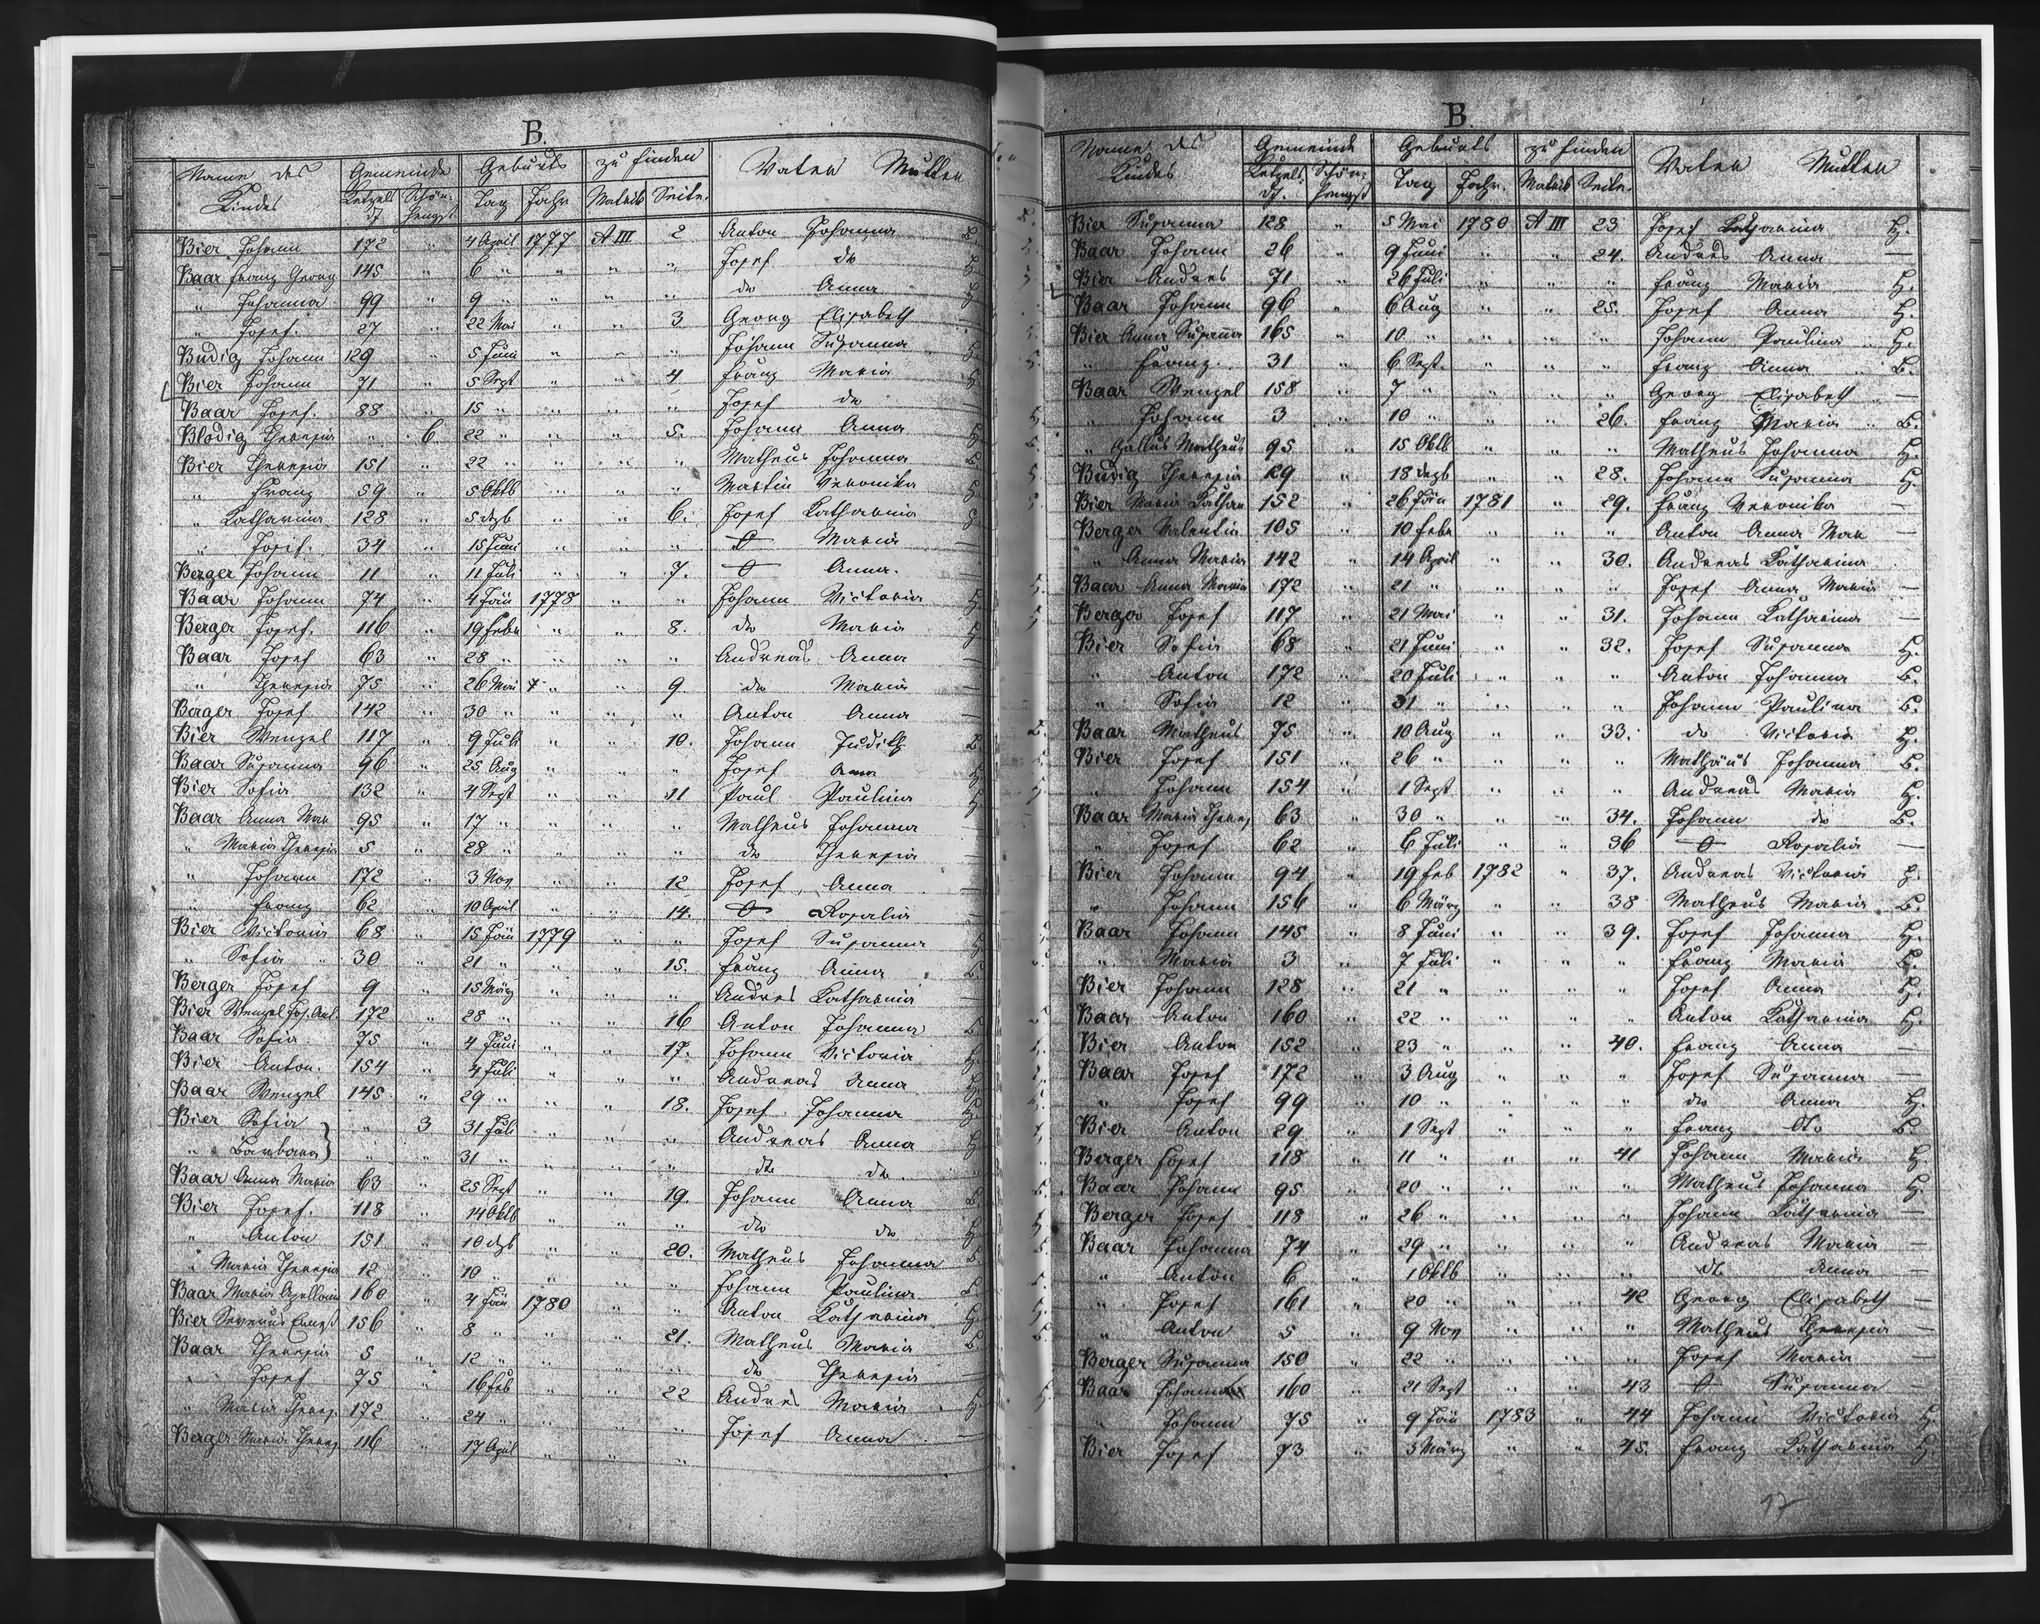 B.
Name des Kindes Gemeinde Ketzelsdf Schönhengst Geburts Tag Jahr zu finden Matrik Seite. Vater Mutter
Bier Johann 172 " 4 April 1777 A III 2 Anton Johanna B.
Baar Franz Georg 145 " 6 " " " " Josef do
" Johanna 99 " 9 " " " " do Anna
" Josef. 27 " 22 Mai " " 3 Georg Elisabeth
Budig Johann 129 " 5 Juni " " " Johann Susanna
Bier Johann 71 " 5 Sept " " 4 Franz Maria
Baar Josef. 88 " 15 " " " " Josef do —
Blodig Theresia " 6 22 " " " 5. Johann Anna
Bier Theresia 151 " 22 " " " " Matheus Johanna
" Franz 59 " 5 Oktb " " " Martin Veronika
" Katharina 128 " 5 dezb " " 6. Josef Katharina
" Josef. 34 " 15 Juni " " " Maria —
Berger Johann 11 " 11 Juli " " 7. Anna. —
Baar Johann 74 " 4 Jän 1778 " " Johann Victoria H.
Berger Josef. 116 " 19 Febr " " 8. do Maria
Baar Josef 63 " 28 " " " " Andreas Anna —
" Theresia 75 " 26 Mai " " 9 do Maria —
Berger Josef 142 " 30 " " " " Anton Anna —
Bier Wenzel 117 " 9 Juli " " 10. Johann Judith B.
Baar Susanna 96 " 25 Aug " " " Josef Anna
Bier Sofia 132 " 4 Sept " " 11 Paul Paulina
Baar Anna Mar 95 " 17 " " " " Matheus Johanna
" Maria Theresia 5 " 28 " " " " do Theresia —
" Johann 172 " 3 Nov " " 12 Josef Anna —
" Franz 62 " 10 April " " 14. Rosalia —
Bier Victoria 68 " 15 Jän 1779 " " Josef Susanna
" Sofia 30 " 21 " " " 15. Franz Anna B.
Berger Josef 9 " 15 März " " " Andres Katharina —
Bier Wenzel Jos. Ant. 172 " 28 " " " 16 Anton Johanna B.
Baar Sofia 75 " 4 Juni " " 17. Johann Victoria
Bier Anton. 154 " 4 Juli " " " Andreas Anna
Baar Wenzel 145 " 29 " " " 18. Josef Johanna H.
Bier Sofia " 3 31 Juli " " " Andreas Anna
" Barbara " " 31 " " " " do do
Baar Anna Maria 63 " 25 Sept " " 19. Johann Anna B.
Bier Josef. 118 " 14 Oktb " " " do do
" Anton 151 " 10 dezb " " 20. Matheus Johanna B.
" Maria Theresia 12 " 10 " " " " Johann Paulina B.
Baar Maria Apollonia 160 " 4 Jän 1780 " " Anton Katharina H.
Bier Severus Ernest 156 " 8 " " " 21. Matheus Maria B.
Baar Theresia 5 " 12 " " " " do Theresia —
" Josef 75 " 16 Feb " " 22 Andres Maria H.
" Maria Theres. 172 " 24 " " " " Josef Anna —
Berger Maria Theres 116 " 17 April " " "
B.
Name des Kindes Gemeinde Ketzelsdf. Schönhengst Geburts Tag Jahr. zu finden Matrik Seite. Vater Mutter
Bier Susanna 128 " 5 Mai 1780 A III 23 Josef Katharina H.
Baar Johann 26 " 9 Juni " " 24. Andres Anna —
Bier Andres 71 " 26 Juli " " " Franz Maria H.
Baar Johann 96 " 6 Aug " " 25. Josef Anna H.
Bier Anna Susanna 165 " 10 " " " " Johann Paulina H.
" Franz. 31 " 6 Sept. " " " Franz Anna B.
Baar Wenzel 158 " 7 " " " " Georg Elisabeth —
" Johann 3 " 10 " " " 26. Franz Maria B.
" Gallus Matheus 95 " 15 Oktb " " " Matheus Johanna H.
Budig Theresia 129 " 18 dezb " " 28. Johann Susanna H.
Bier Maria Kathar 152 " 26 Jän 1781 " 29. Franz Veronika —
Berger Valentin 105 " 10 Febr " " " Anton Anna Mar —
" Anna Maria 142 " 14 April " " 30. Andreas Katharina
Baar Anna Maria 172 " 21 " " " " Josef Anna Maria —
Berger Josef 117 " 21 Mai " " 31. Johann Katharina —
Bier Sofia 68 " 21 Juni " " 32. Josef Susanna H.
" Anton 172 " 20 Juli " " " Anton Johanna B.
" Sofia 12 " 31 " " " " Johann Paulina B.
Baar Matheus 75 " 10 Aug " " 33. do Victoria H.
Bier Josef 151 " 26 " " " " Mathäus Johanna B.
" Johann 154 " 1 Sept " " " Andreas Maria H.
Baar Maria Theres 63 " 30 " " " 34. Johann do B.
" Josef 62 " 6 Juli " " 36 Rosalia —
Bier Johann 94 " 19 Feb 1782 " 37. Andreas Victoria H.
" Johann 156 " 6 März " " 38 Matheus Maria B.
Baar Johann 145 " 8 Juni " " 39. Josef Johanna H.
" Maria 3 " 7 Juli " " " Franz Maria B.
Bier Johann 128 " 21 " " " " Josef Anna H.
Baar Anton 160 " 22 " " " " Anton Katharina H.
Bier Anton 152 " 23 " " " 40. Franz Anna —
Baar Josef 172 " 3 Aug " " " Josef Susanna —
" Josef 99 " 10 " " " " do Anna H.
Bier Anton 29 " 1 Sept " " " Franz do B.
Berger Josef 118 " 11 " " " 41 Johann Maria H
Baar Johann 95 " 20 " " " " Matheus Johanna H.
Berger Josef 118 " 26 " " " " Johann Katharina —
Baar Johanna 74 " 29 " " " " Andreas Maria —
" Anton 6 " 1 Oktb " " " do Anna —
" Josef 161 " 20 " " " 42 Georg Elisabeth —
" Anton 5 " 9 Nov " " " Matheus Theresia —
Berger Susanna 150 " 22 " " " " Josef Maria —
Baar Johann 160 " 21 Sept " " 43 Susanna —
" Johann 75 " 9 Jän 1783 " 44 Johann Victoria H.
Bier Josef 73 " 5 März " " 45. Franz Katharina H.
17